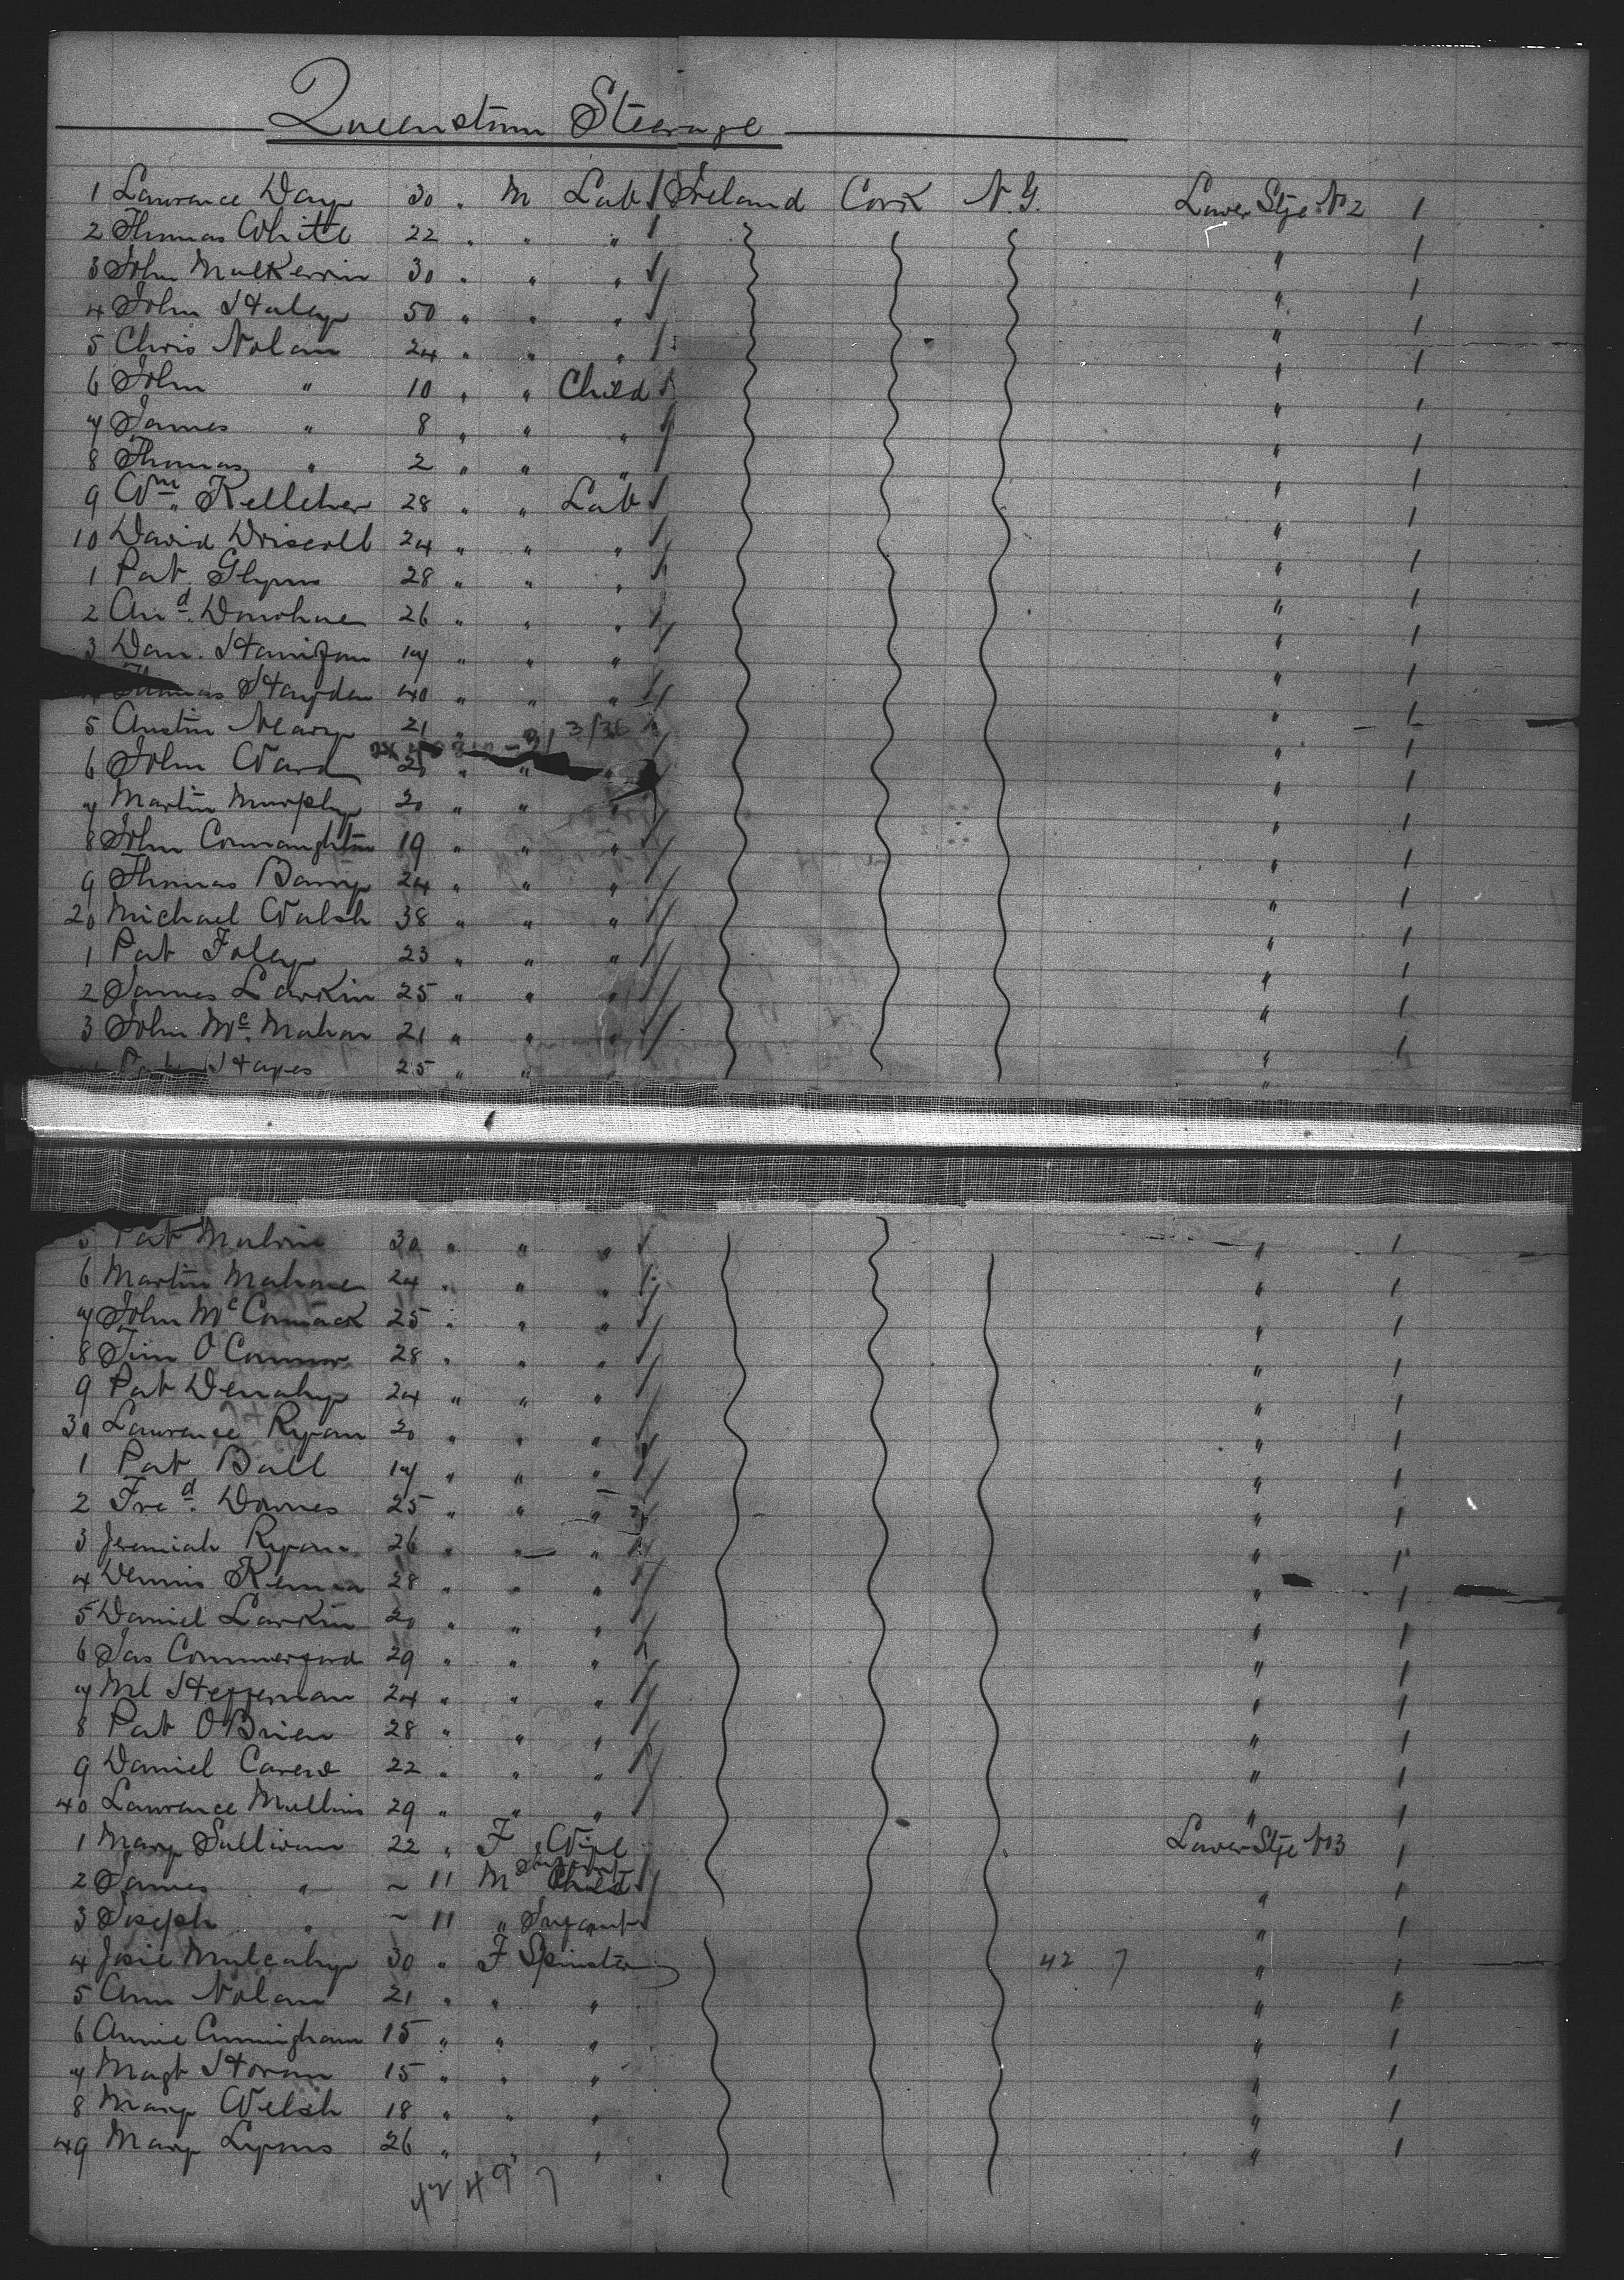 Queenstown Steerage
1 Lawrence Day 30 " M Lab Ireland Cork N.Y. Lower Stge No 2 1
2 Thomas White 22 " " " " 1
3 John Mulkerrin 30 " " " " 1
4 John Haley 50 " " " " 1
5 Chris Nolan 24 " " " " 1
6 John " 10 " " Child " 1
7 James " 8 " " " " 1
8 Thomas " 2 " " " " 1
9 Wm Kelleher 28 " " Lab " 1
10 David Driscoll 24 " " " " 1
1 Pat Glynn 28 " " " " 1
2 And. Donohue 26 " " " " 1
3 Dan. Hanifan 17 " " " " 1
Thomas Hayden 40 " " " " 1
5 Austin Neary 21 " " 1
6 John Ward 20 " " " " 1
7 Martin Murphy 20 " " " " 1
8 John Connaughton 19 " " " " 1
9 Thomas Barry 24 " " " " 1
20 Michael Walsh 38 " " " " 1
1 Pat Foley 23 " " " " 1
2 James Larkin 25 " " " " 1
3 John Mc. Mahon 21 " " " " 1
Hayes 25 " " "
5 Pat Mulvin 30 " " " " 1
6 Martin Mahone 24 " " " " 1
7 John McCormack 25 " " " " 1
8 Tim O'Connor 28 " " " " 1
9 Pat Denahy 24 " " " " 1
30 Lawrence Ryan 20 " " " " 1
1 Pat Ball 17 " " " " 1
2 Fred. Downes 25 " " " " 1
3 Jeremiah Ryan 26 " " " " 1
4 Dennis Kenna 28 " " " " 1
5 Daniel Larkin 20 " " " " 1
6 Jas Commerford 29 " " " " 1
7 Ml Heffernan 24 " " " " 1
8 Pat O'Brien 28 " " " " 1
9 Daniel Carew 22 " " " " 1
40 Lawrence Mullins 29 " " " " 1
1 Mary Sullivan 22 " F Wife Lower Stge No 3 1
2 James " ~ 11 M Infant Child " 1
3 Joseph " ~ 11 " Infant " 1
4 Josie Mulcahy 30 " F Spinster 42 7 " 1
5 Ann Nolan 21 " " " " 1
6 Annie Cunningham 15 " " " " 1
7 Magt Horan 15 " " " " 1
8 Mary Welsh 18 " " " " 1
49 Mary Lyons 26 " " " " 1
42 49 7